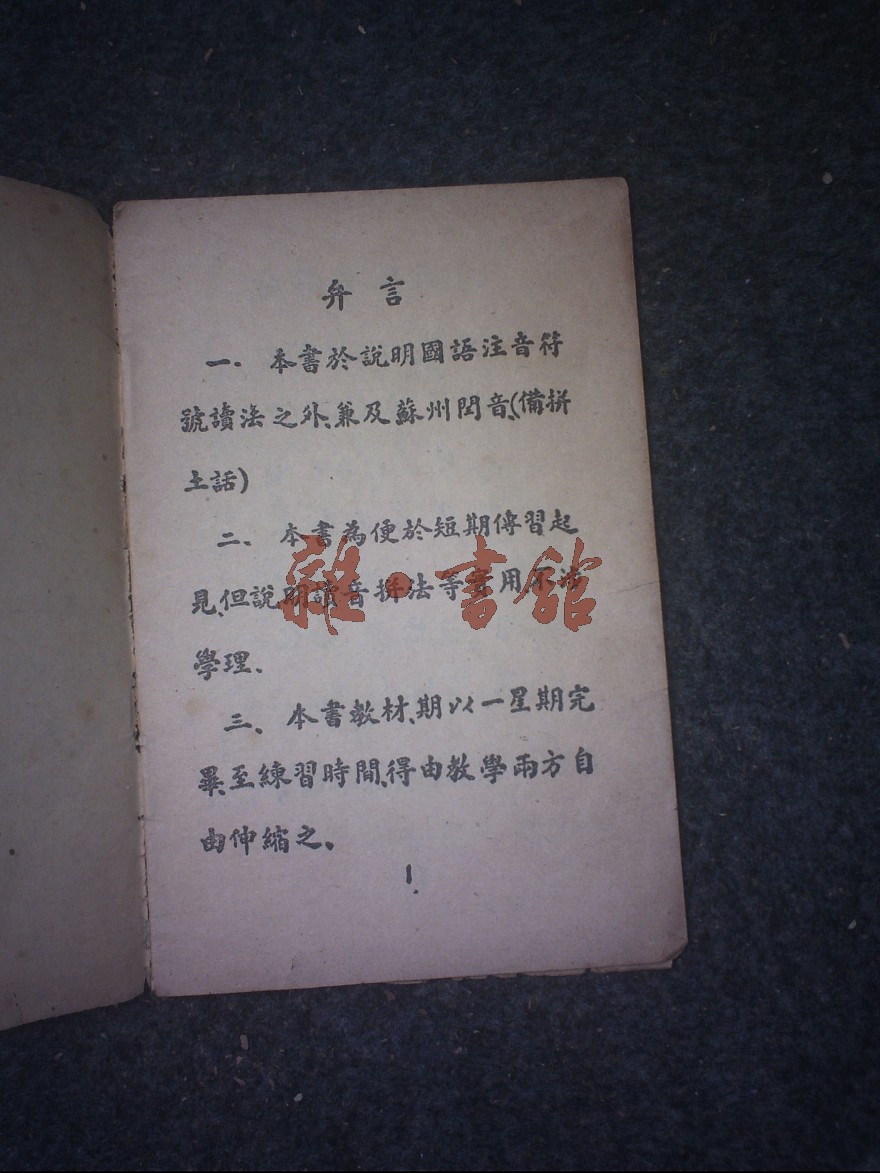 弁言
一、本書於說明國語注音符
號讀法之外、兼及蘇州閏音、(備拼
土話)
二、本書為便於短期傳習起
見、但說明讀音拼法等實用不涉
學理、
三、本書教材、期以一星期完
畢、至練習時間、得由教學兩方自
由伸縮之、
1
雜·書館